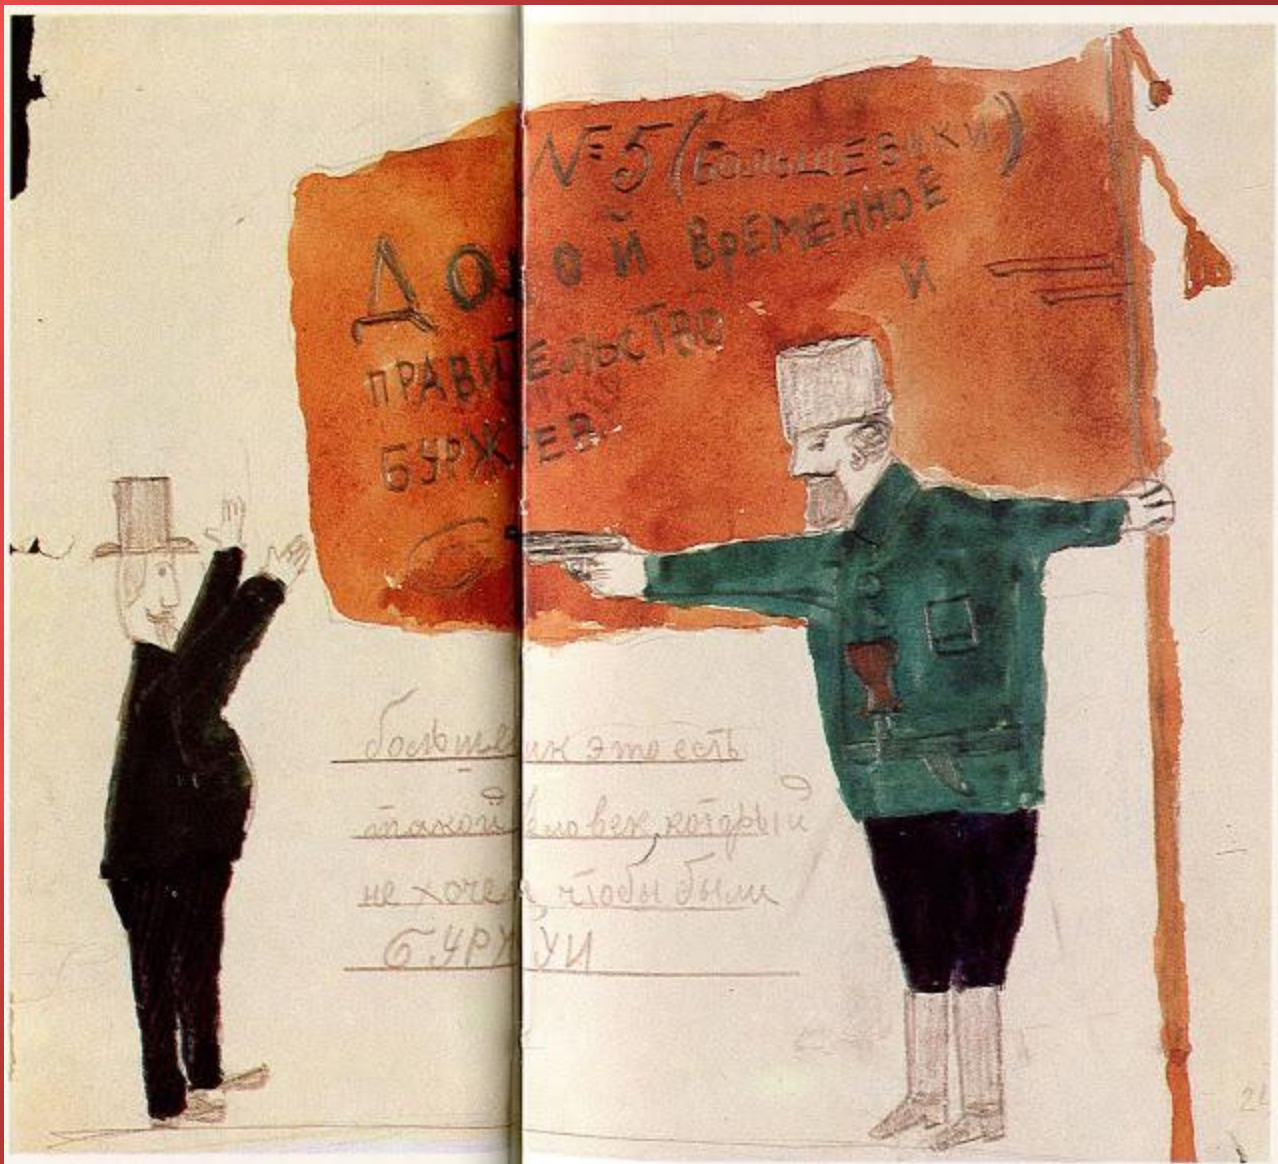 № 5 (БОЛЬШЕВИКИ)
ДОЛОЙ ВРЕМЕННОЕ
ПРАВИТЕЛЬСТВО И
БУРЖУЕВ.
большевик это есть
такой человек, который
не хочет, чтобы были
БУРЖУИ